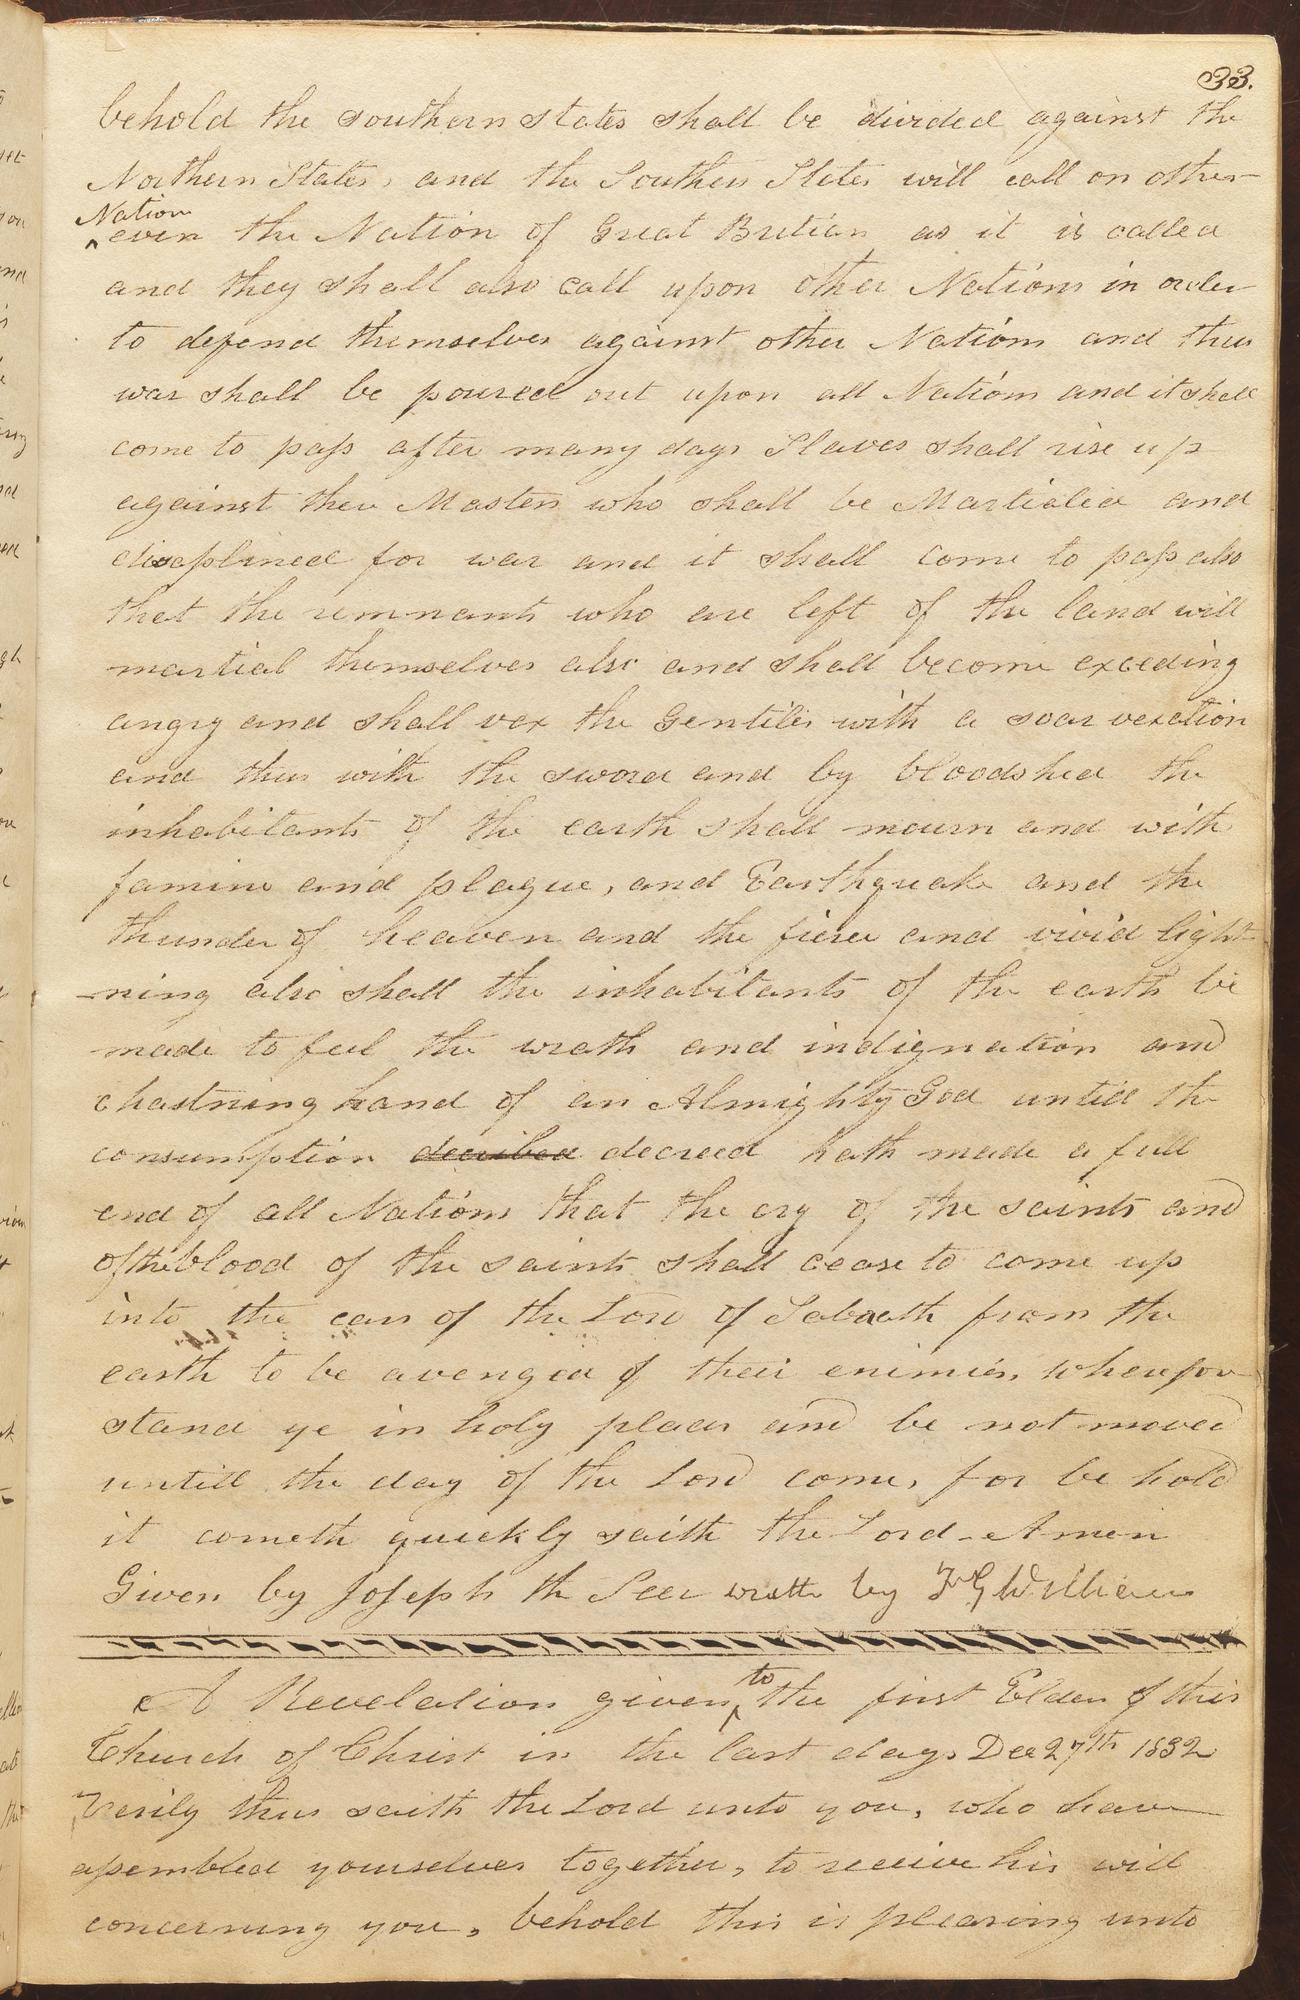 33.
behold the southern states shall be divided against the
Northern States, and the Southern States will call on other
Nation
even the Nation of Great Britian as it is called
and they shall also call upon other Nations in order
to defend themselves against other Nations and thus
war shall be poured out upon all Nations and it shall
come to pass after many days Slaves shall rise up
against their Masters who shall be Martialed and
disaplined for war and it shall come to pass also
that the remnants who are left of the land will
martial themselves also and shall become exceding
angry and shall vex the Gentiles with a soar vexation
and thus with the sword and by bloodshed the
inhabitants of the earth shall mourn and with
famine and plague, and Earthquake and the
thunder of heaven and the fierce and vivid light
-ning also shall the inhabitants of the earth be
made to feel the wrath and indignation and
chastning hand of an Almighty God untill the
consumption decribed decreed hath made a full
end of all Nations that the cry of the saints and
of the blood of the saints shall cease to come up
into the ears of the Lord of Sabaoth from the
earth to be avenged of their enimies, wherefor
stand ye in holy places and be not moved
untill the day of the Lord come, for be hold
it cometh quickly saith the Lord - Amen
Given by Joseph the Seer wratte by F G Williams
A Revelation given to the first Elders of this
Church of Christ in the last days Dec 27th 1832
Verily thus saith the Lord unto you, who have
assembled yourselves together, to receive his will
concerning you, behold this is pleasing unto